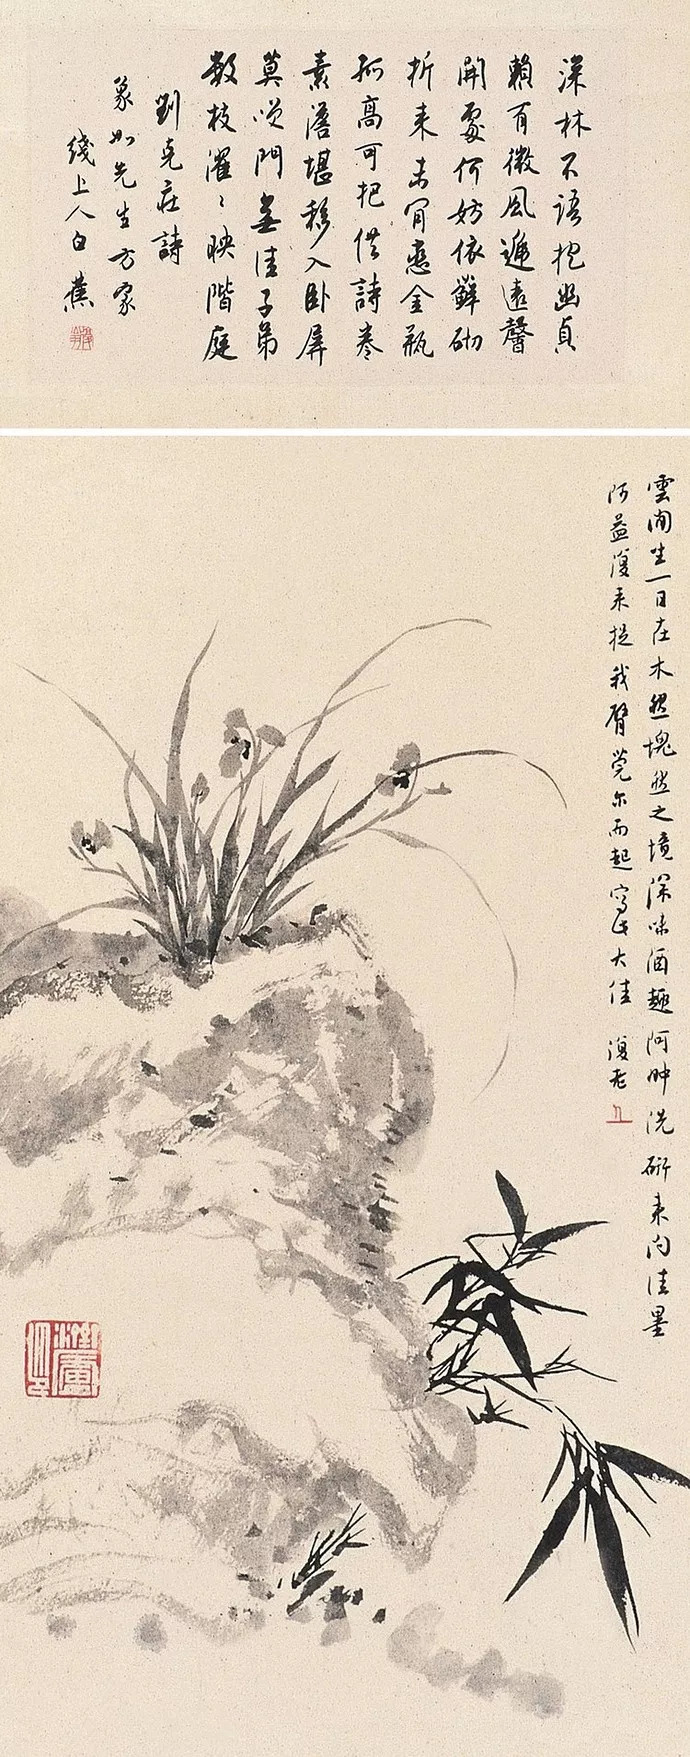 深林不語抱幽貞
賴有微風遞遠馨
開處何妨依蘚砌
折来未肯戀金瓶
孤高可把供詩卷
素澹堪移入卧屏
莫笑門無佳子弟
數枝濯〻映階庭
劉克莊詩
象如先生方家
綫上人白蕉
雲間生一日在木然塊然之境深味酒趣阿時洗硏来向佳墨
阿益復来捉我臂莞尔而起寫此大佳 復老